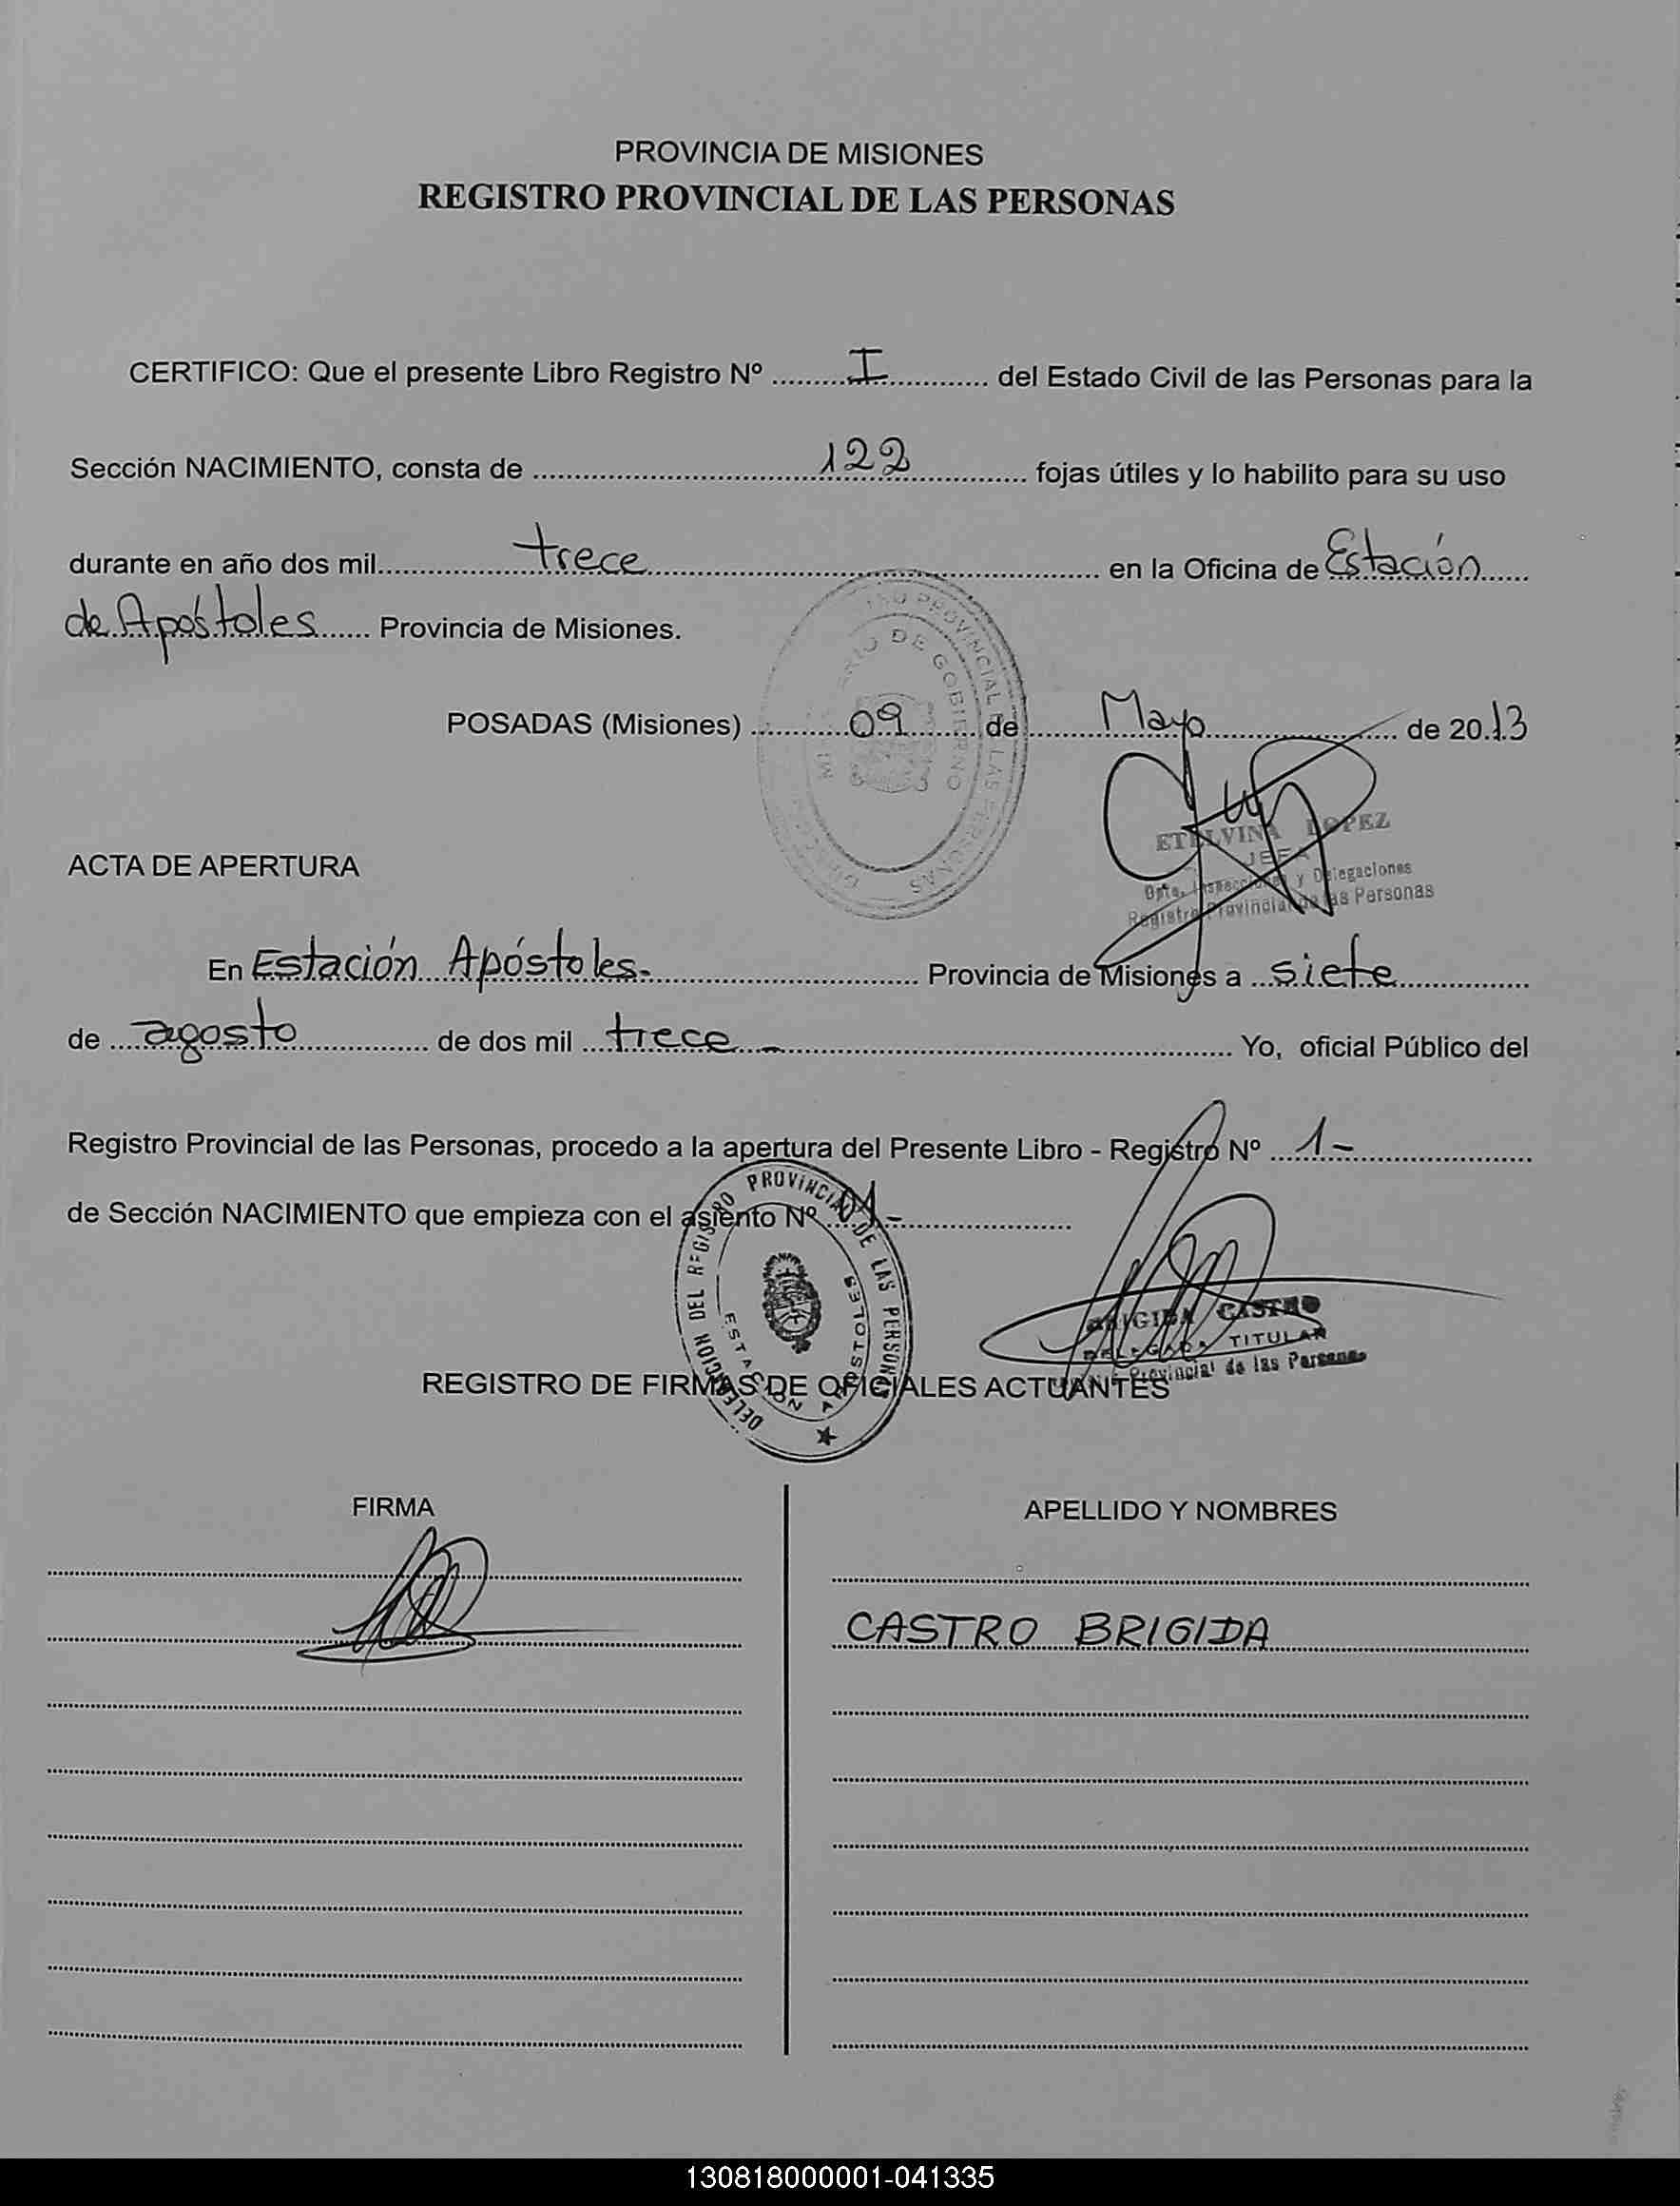 PROVINCIA DE MISIONES
REGISTRO PROVINCIAL DE LAS PERSONAS
CERTIFICO: Que el presente Libro Registro Nº ......... I ............. del Estado Civil de las Personas para la
Sección NACIMIENTO, consta de ............ 122 ............ fojas útiles y lo habilito para su uso
durante en año dos mil ............ trece ............ en la Oficina de Estación
de Apóstoles ....... Provincia de Misiones.
POSADAS (Misiones) ......... 09 ......... de ......... Mayo ......... de 20.13
ETELVINA LOPEZ
JEFA
Dpto. Inspecciones y Delegaciones
Registro Provincial de las Personas
ACTA DE APERTURA
En Estación Apóstoles.- ............ Provincia de Misiones a ... siete ............
de .... agosto ............ de dos mil .... trece - ............ Yo, oficial Público del
Registro Provincial de las Personas, procedo a la apertura del Presente Libro - Registro Nº ... 1- ............
de Sección NACIMIENTO que empieza con el asiento Nº .... 01- ............
DELEGACION DEL REGISTRO PROVINCIAL DE LAS PERSONAS
ESTACION APOSTOLES
BRIGIDA CASTRO
DELEGADA TITULAR
Provincial de las Personas
REGISTRO DE FIRMAS DE OFICIALES ACTUANTES
FIRMA APELLIDO Y NOMBRES
CASTRO BRIGIDA
130818000001-041335